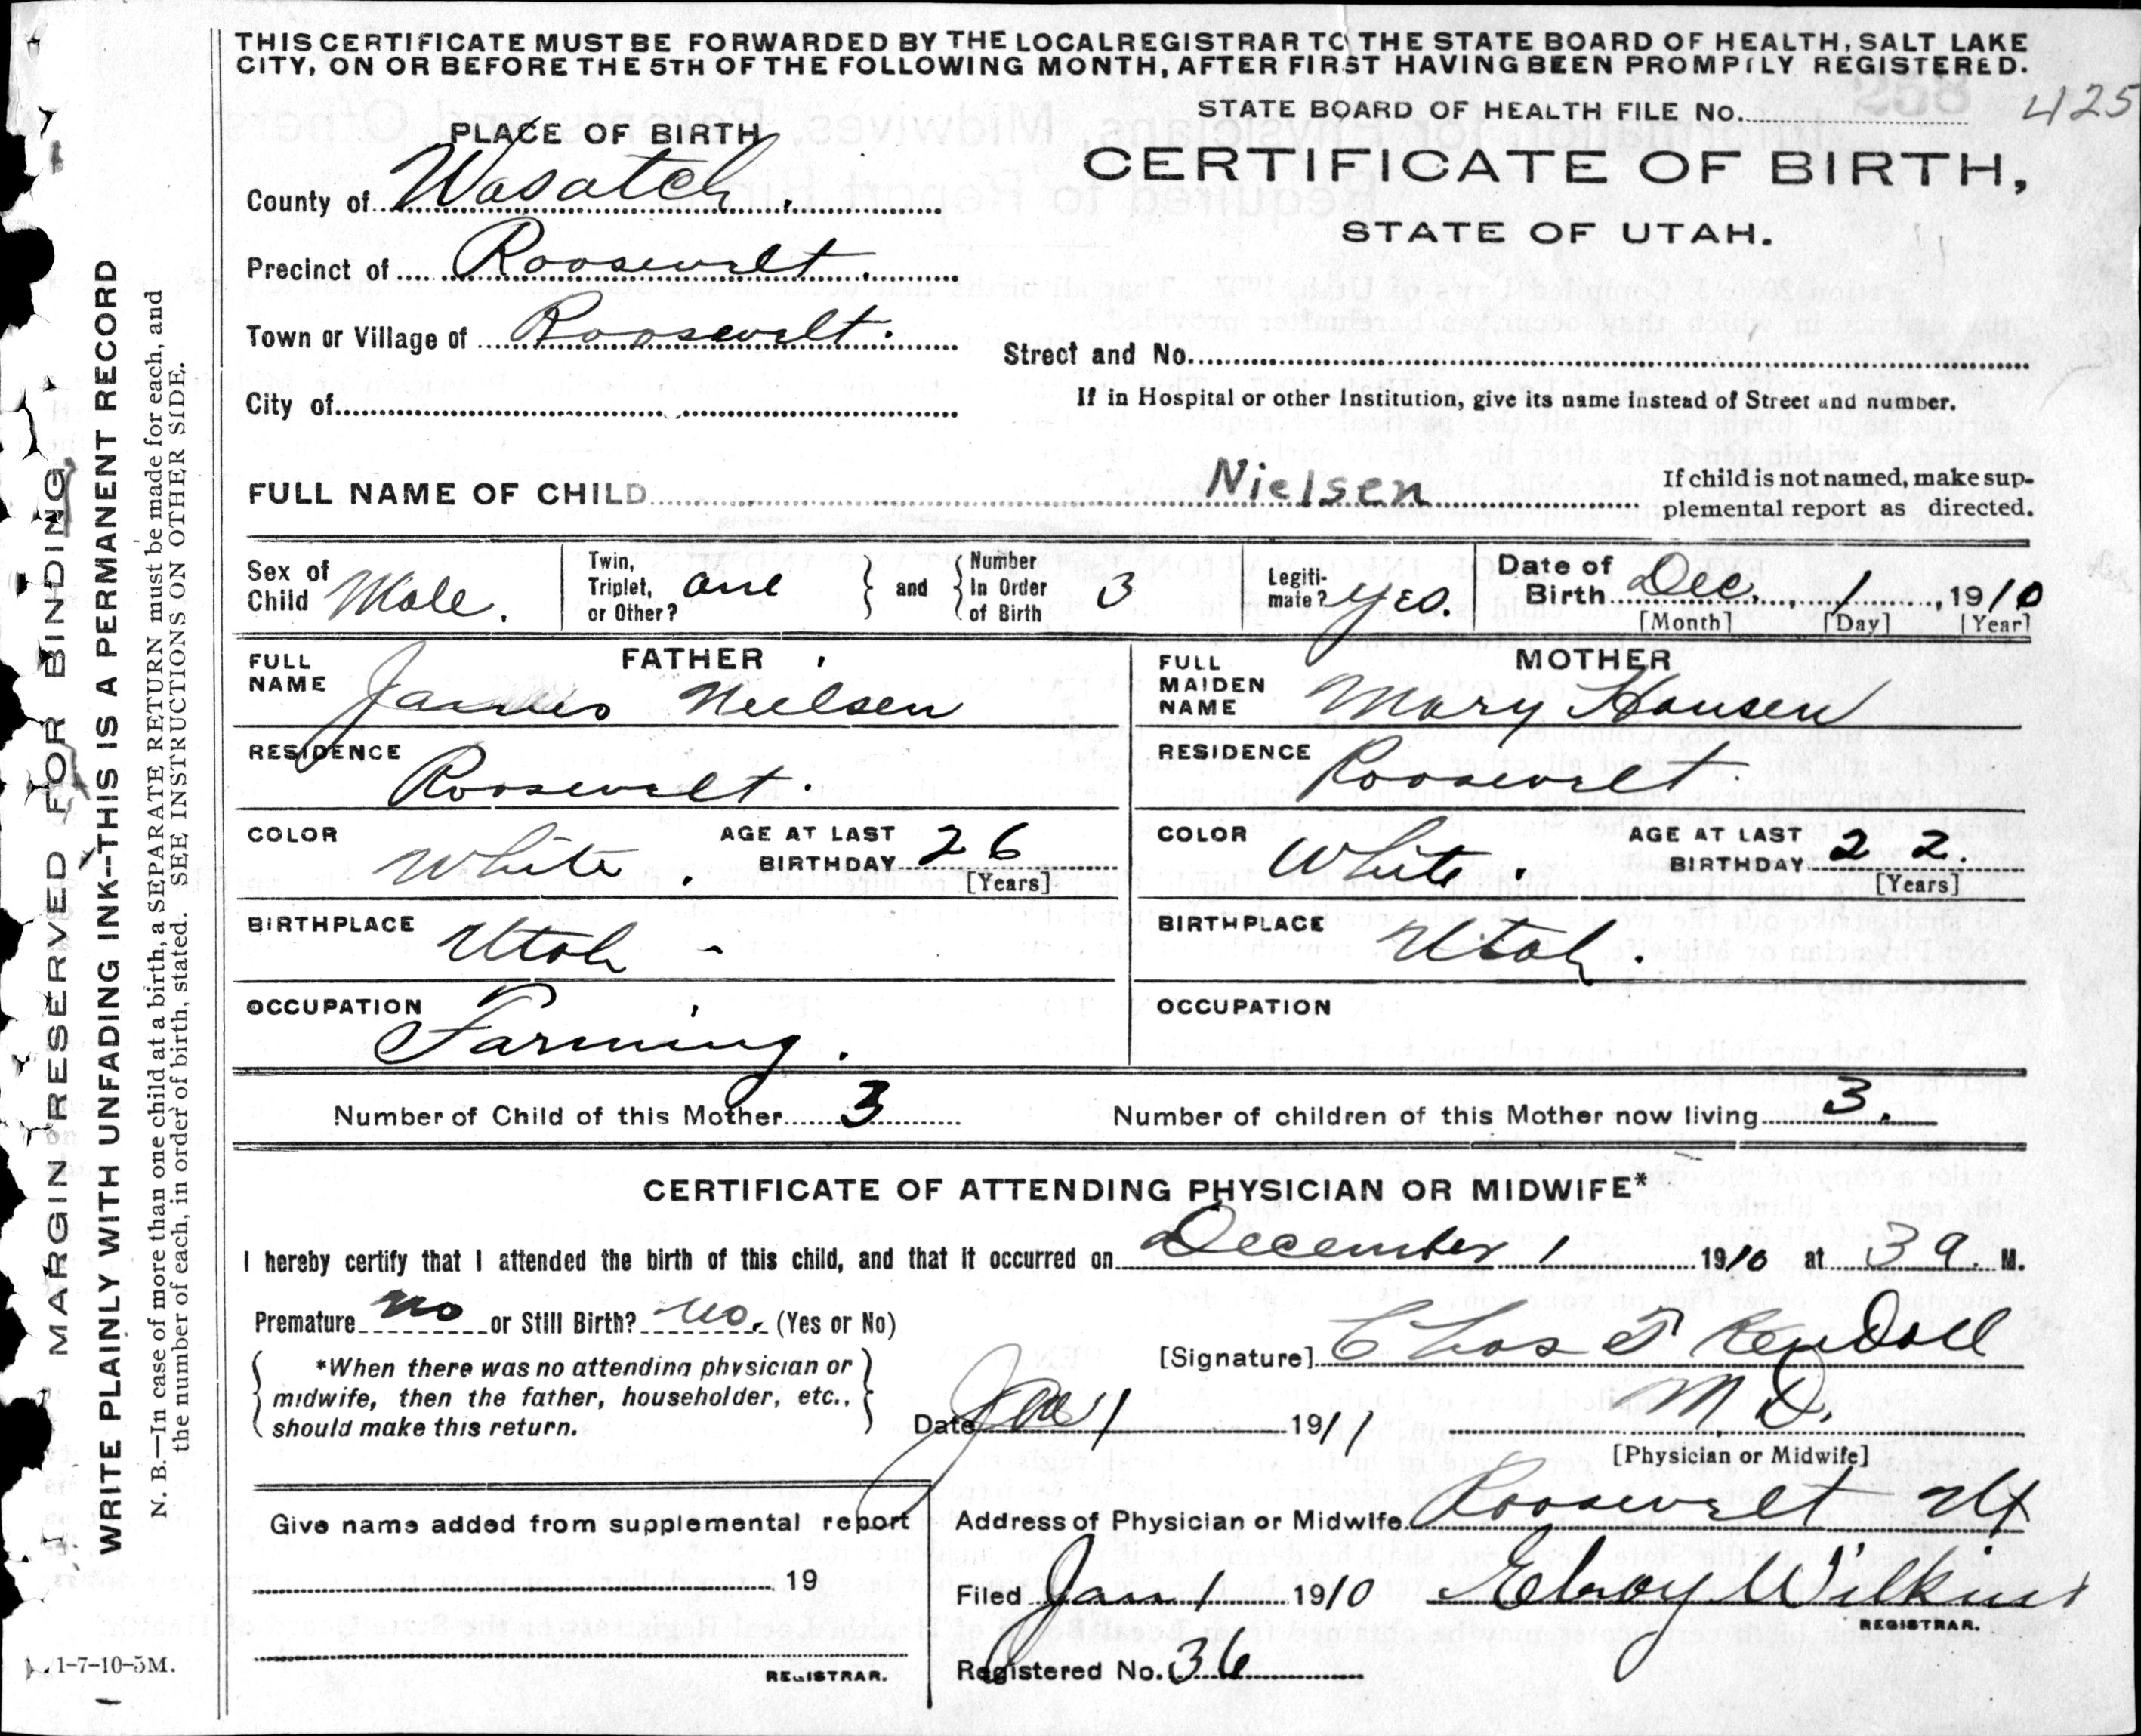 THIS CERTIFICATE MUST BE FORWARDED BY THE LOCAL REGISTRAR TO THE STATE BOARD OF HEALTH, SALT LAKE
CITY, ON OR BEFORE THE 5TH OF THE FOLLOWING MONTH, AFTER FIRST HAVING BEEN PROMPTLY REGISTERED.
STATE BOARD OF HEALTH FILE No. 425
PLACE OF BIRTH
CERTIFICATE OF BIRTH,
STATE OF UTAH.
County of Wasatch.
Precinct of Roosevelt.
Town or Village of Roosevelt.
Street and No.
City of
If in Hospital or other Institution, give its name instead of Street and number.
FULL NAME OF CHILD Nielsen
If child is not named, make sup-
plemental report as directed.
Sex of Child Male.
Twin, Triplet, or Other? one
and
Number In Order of Birth 3
Legiti-mate? yes.
Date of Birth Dec. 1, 1910
[Month] [Day] [Year]
FATHER
FULL NAME James Nielsen
RESIDENCE Roosevelt.
COLOR White.
AGE AT LAST BIRTHDAY 26
[Years]
BIRTHPLACE Utah -
OCCUPATION Farming.
MOTHER
FULL MAIDEN NAME Mary Hansen
RESIDENCE Roosevelt
COLOR White.
AGE AT LAST BIRTHDAY 22.
[Years]
BIRTHPLACE Utah.
OCCUPATION
Number of Child of this Mother 3
Number of children of this Mother now living 3.
CERTIFICATE OF ATTENDING PHYSICIAN OR MIDWIFE*
I hereby certify that I attended the birth of this child, and that it occurred on December 1 1910 at 3 a. M.
Premature no or Still Birth? no. (Yes or No)
*When there was no attending physician or
midwife, then the father, householder, etc.,
should make this return.
[Signature] Chas Kendall
Date Jan 1 1911
M D.
[Physician or Midwife]
Give name added from supplemental report
19
REGISTRAR.
Address of Physician or Midwife Roosevelt Ut
Filed Jan 1 1910 Elroy Wilkins
REGISTRAR.
Registered No. 36
MARGIN RESERVED FOR BINDING
WRITE PLAINLY WITH UNFADING INK--THIS IS A PERMANENT RECORD
N. B.—In case of more than one child at a birth, a SEPARATE RETURN must be made for each, and
the number of each, in order of birth, stated. SEE INSTRUCTIONS ON OTHER SIDE.
1-7-10-5M.